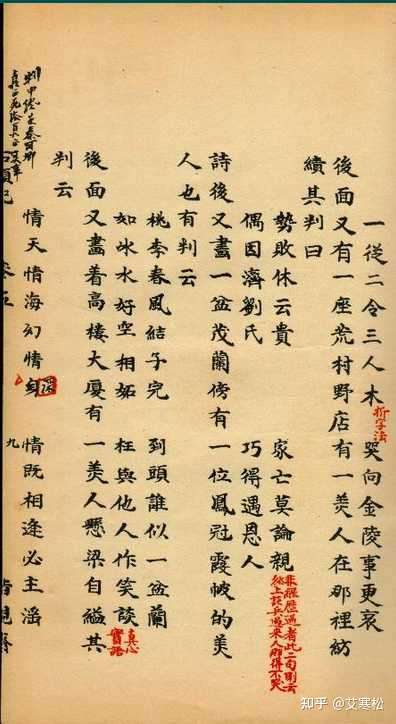 一從二令三人木 拆字法 哭向金陵事更哀
後面又有一座荒村野店有一美人在那裡紡
績其判曰
勢敗休云貴 家亡莫論親
偶因濟劉氏 巧得遇恩人
非經歷過者此二句則云
紙上談兵過來人那得不哭
詩後又畫一盆茂蘭傍有一位鳳冠霞帔的美
人也有判云
桃李春風結子完 到頭誰似一盆蘭
如冰水好空相妬 枉與他人作笑談
真心
實語
後面又畫着高樓大厦有一美人懸梁自縊其
判云
情天情海幻情身 情既相逢必主滛
石頭記 卷五 九 脂硯齋
知乎 @艾寒松